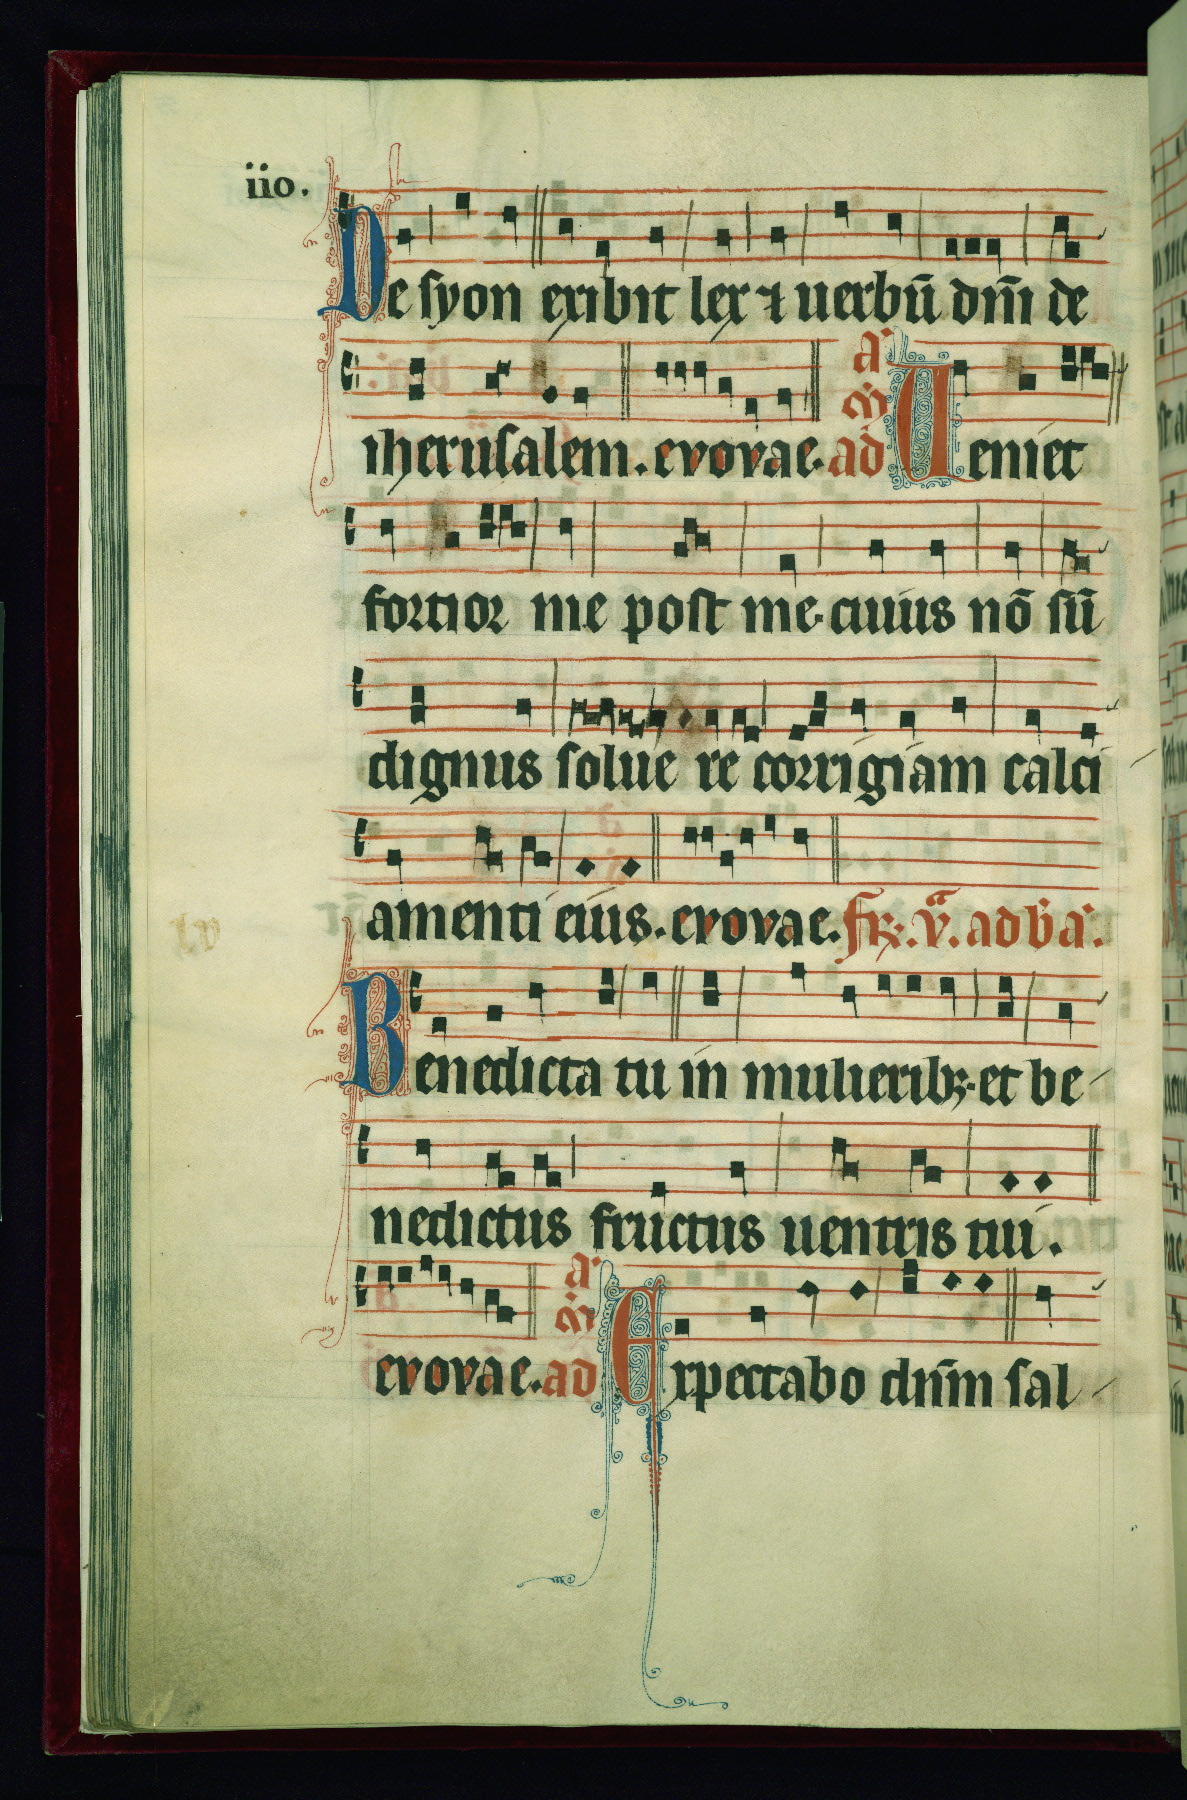 iio.
De syon exibit lex ⁊ uerbū dn̄i de
iherusalem. evovae. ad m̄ a᷒ Ueniet
fortior me post me. cuius nō sū
dignus solue re corrigiam calci
amenti eius. evovae. fr̄. v̄. ad b̄ a᷒.
lv
Benedicta tu in mulieribꝫ. et be
nedictus fructus uentris tui.
evovae. ad m̄ a᷒ Expectabo dn̄m sal